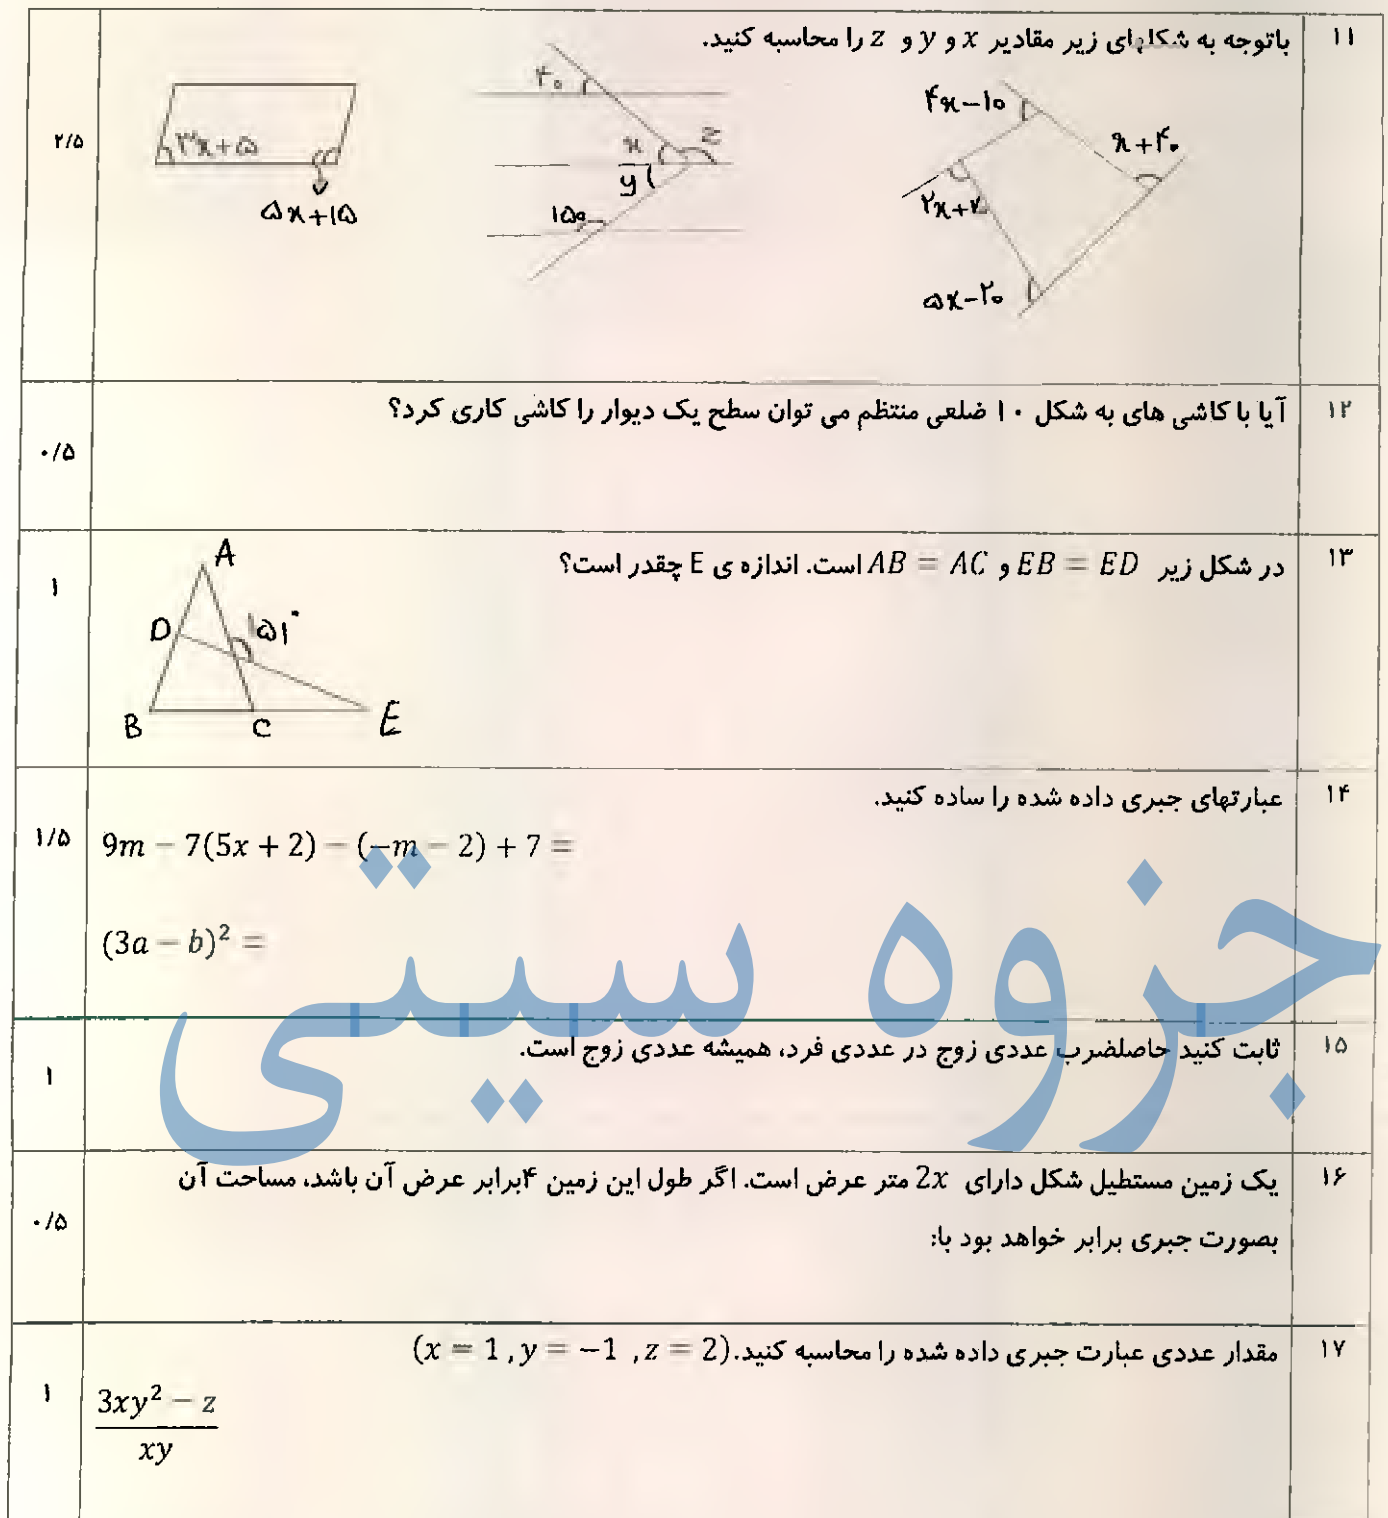 ۱۱
باتوجه به شکلهای زیر مقادیر x و y و z را محاسبه کنید.
۲/۵
۳x+۵
۵x+۱۵
۴۰
x
y
z
۱۵۰
۴x-۱۰
x+۴۰
۵x-۲۰
۱۲
آیا با کاشی های به شکل ۱۰ ضلعی منتظم می توان سطح یک دیوار را کاشی کاری کرد؟
۰/۵
۱۳
در شکل زیر EB = ED و AB = AC است. اندازه ی E چقدر است؟
۱
A
D
۱۵۱°
B
C
E
۱۴
عبارتهای جبری داده شده را ساده کنید.
۱/۵
9m − 7(5x + 2) − (−m − 2) + 7 =
(3a − b)² =
جزوه سیتی
۱۵
ثابت کنید حاصلضرب عددی زوج در عددی فرد، همیشه عددی زوج است.
۱
۱۶
یک زمین مستطیل شکل دارای 2x متر عرض است. اگر طول این زمین ۴برابر عرض آن باشد، مساحت آن
بصورت جبری برابر خواهد بود با:
۰/۵
۱۷
مقدار عددی عبارت جبری داده شده را محاسبه کنید.(x = 1 , y = −1 , z = 2)
۱
3xy² − z
xy